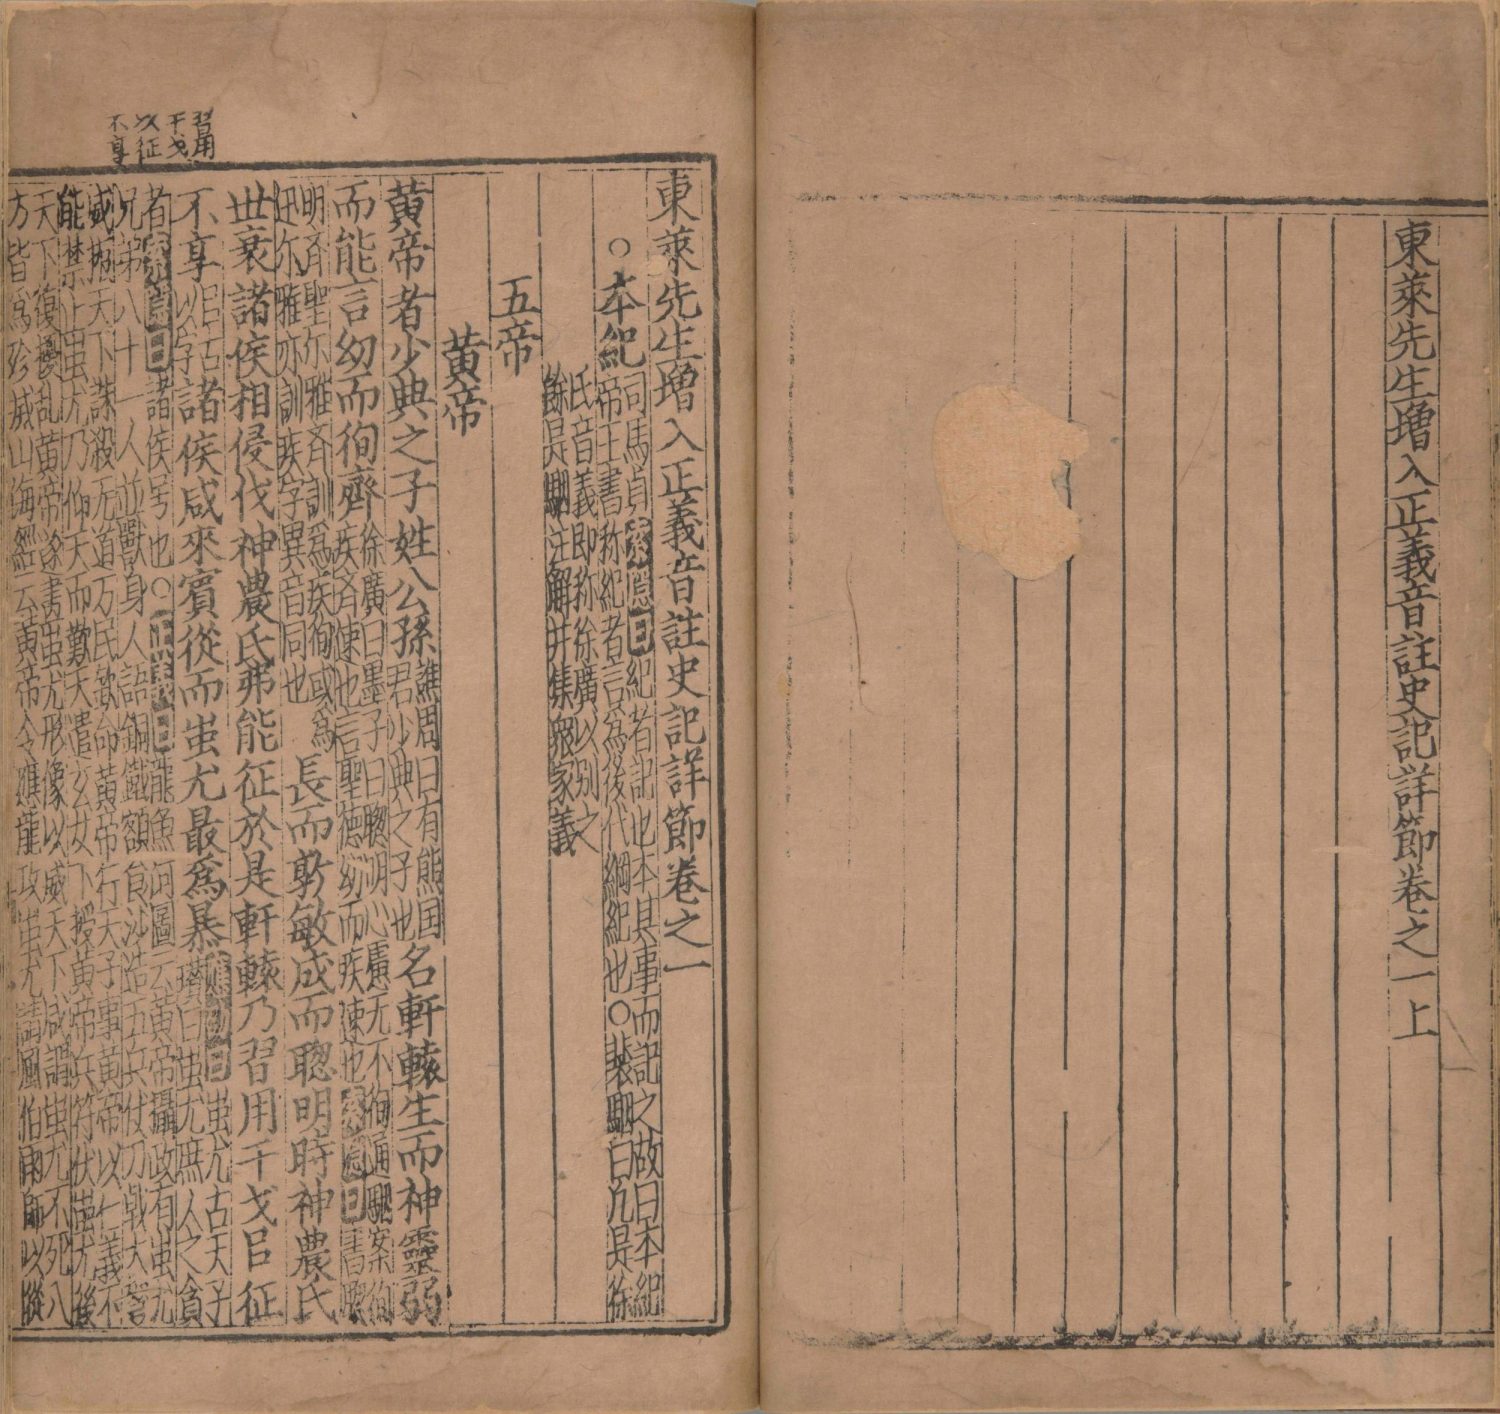 東萊先生增入正義音註史記詳節卷之一上
東萊先生增入正義音註史記詳節卷之一
○本紀
司馬貞索隱曰紀者記也本其事而記之故曰本紀
帝王書称紀者言為後代綱紀也○裴駰曰凡是徐
氏音義即称徐廣以别之
餘是駰注解并集眾家義
五帝
黃帝
黃帝者少典之子姓公孫
譙周曰有熊国
君少典之子也
名軒轅生而神靈弱
而能言幼而徇齊
徐廣曰墨子曰聰明心慮无不徇通駰案徇
疾齊速也言聖德幼而疾速也索隱曰書曰聰
明齊聖尔雅齊訓為疾徇或為
迅尔雅亦訓疾字異音同也
長而敦敏成而聦明時神農氏
世衰諸侯相侵伐神農氏弗能征於是軒轅乃習用干戈㠯征
不享
㠯古
以字
諸侯咸來賓從而蚩尤最為暴
應劭曰蚩尤古天子
瓚曰蚩尤庶人之貪
者索隱曰諸侯号也○正義曰龍魚河圖云黃帝攝政有蚩尤
兄弟八十一人並獸身人語銅鐵額食沙造五兵仗刀戟大弩
威振天下誅殺无道万民欽命黃帝行天子事黃帝以仁義不
能禁止蚩尤乃仰天而歎天遣玄女下授黃帝兵符伏蚩尤後
天下復擾亂黃帝遂畫蚩尤形像以威天下咸謂蚩尤不死八
方皆為殄滅山海經云黃帝令應龍攻蚩尤請風伯雨師以從
習用
干戈
以征
不享